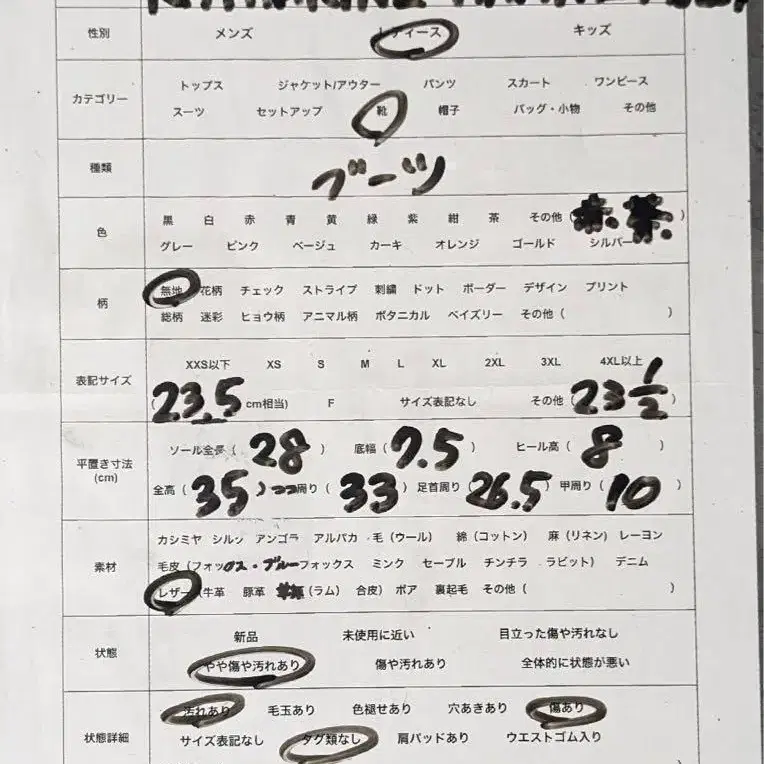 性別 メンズ レディース キッズ
トップス ジャケット/アウター パンツ スカート ワンピース
カテゴリー
スーツ セットアップ 靴 帽子 バッグ・小物 その他
種類 ブーツ
黒 白 赤 青 黄 緑 紫 紺 茶 その他 ( )
色
グレー ピンク ベージュ カーキ オレンジ ゴールド シルバー
無地 花柄 チェック ストライプ 刺繍 ドット ボーダー デザイン プリント
柄
総柄 迷彩 ヒョウ柄 アニマル柄 ボタニカル ペイズリー その他 ( )
XXS以下 XS S M L XL 2XL 3XL 4XL以上
表記サイズ
(23.5 cm相当) F サイズ表記なし その他 (23 1/2)
ソール全長 (28) 底幅 (7.5) ヒール高 (8)
平置き寸法
(cm)
全高 (35) 周り (33) 足首周り (26.5) 甲周り (10)
カシミヤ シルク アンゴラ アルパカ 毛 (ウール) 綿 (コットン) 麻 (リネン) レーヨン
素材
毛皮 (フォックス・ブルーフォックス ミンク セーブル チンチラ ラビット) デニム
レザー (牛革 豚革 (ラム) 合皮) ボア 裏起毛 その他 ( )
新品 未使用に近い 目立った傷や汚れなし
状態
やや傷や汚れあり 傷や汚れあり 全体的に状態が悪い
汚れあり 毛玉あり 色褪せあり 穴あきあり 傷あり
状態詳細
サイズ表記なし タグ類なし 肩パッドあり ウエストゴム入り